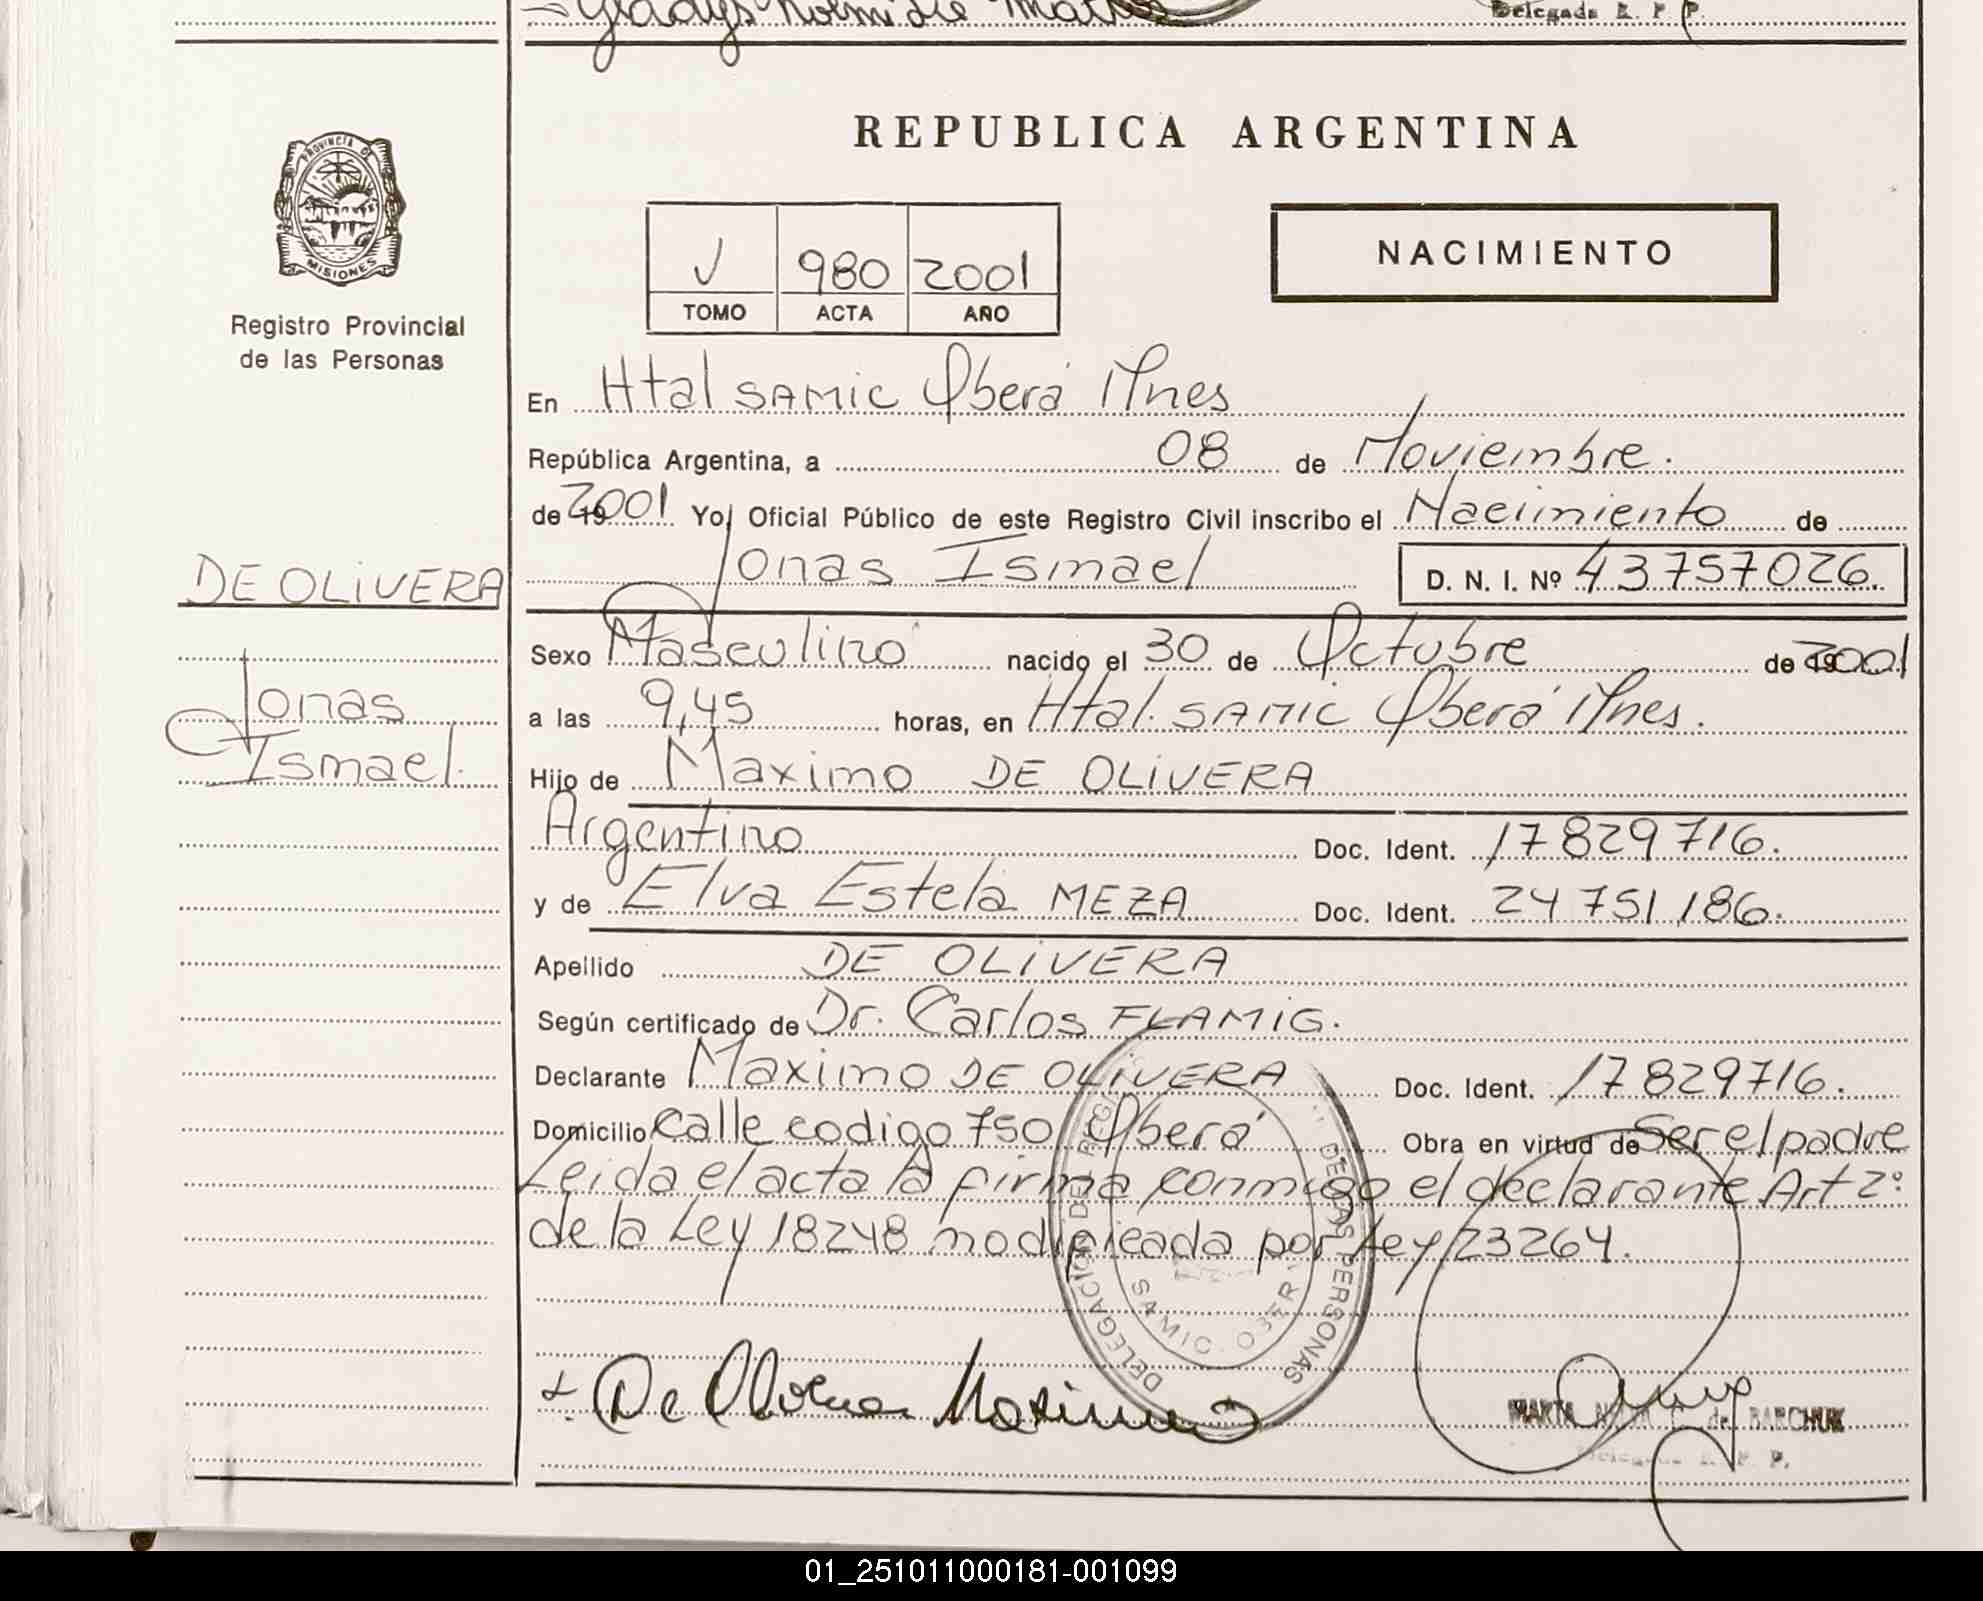 Gladys
Delegada R. P. P.
PROVINCIA DE
MISIONES
Registro Provincial
de las Personas
DE OLIVERA
Jonas
Ismael.
REPUBLICA ARGENTINA
V 980 2001
TOMO ACTA AÑO
NACIMIENTO
En Htal SAMIC Oberá Mnes
República Argentina, a 08 de Noviembre.
de 19 2001 Yo, Oficial Público de este Registro Civil inscribo el Nacimiento de
Jonas Ismael D. N. I. Nº 43757026.
Sexo Masculino nacido el 30 de Octubre de 19 2001
a las 9,45 horas, en Htal. SAMIC Oberá Mnes.
Hijo de Maximo DE OLIVERA
Argentino Doc. Ident. 17829716.
y de Elva Estela MEZA Doc. Ident. 24751186.
Apellido DE OLIVERA
Según certificado de Dr. Carlos FLAMIG.
Declarante Maximo DE OLIVERA Doc. Ident. 17829716.
Domicilio Calle codigo 750 Oberá Obra en virtud de Ser el padre
Leida el acta la firma conmigo el declarante Art 2º
de la Ley 18248 modificada por Ley 23264.
DELEGACION DEL REGI DE LAS PERSONAS
SAMIC. OBER
De Olivera Maximo
MARTA C. de BARCHUK
Delegada R. P. P.
01_251011000181-001099